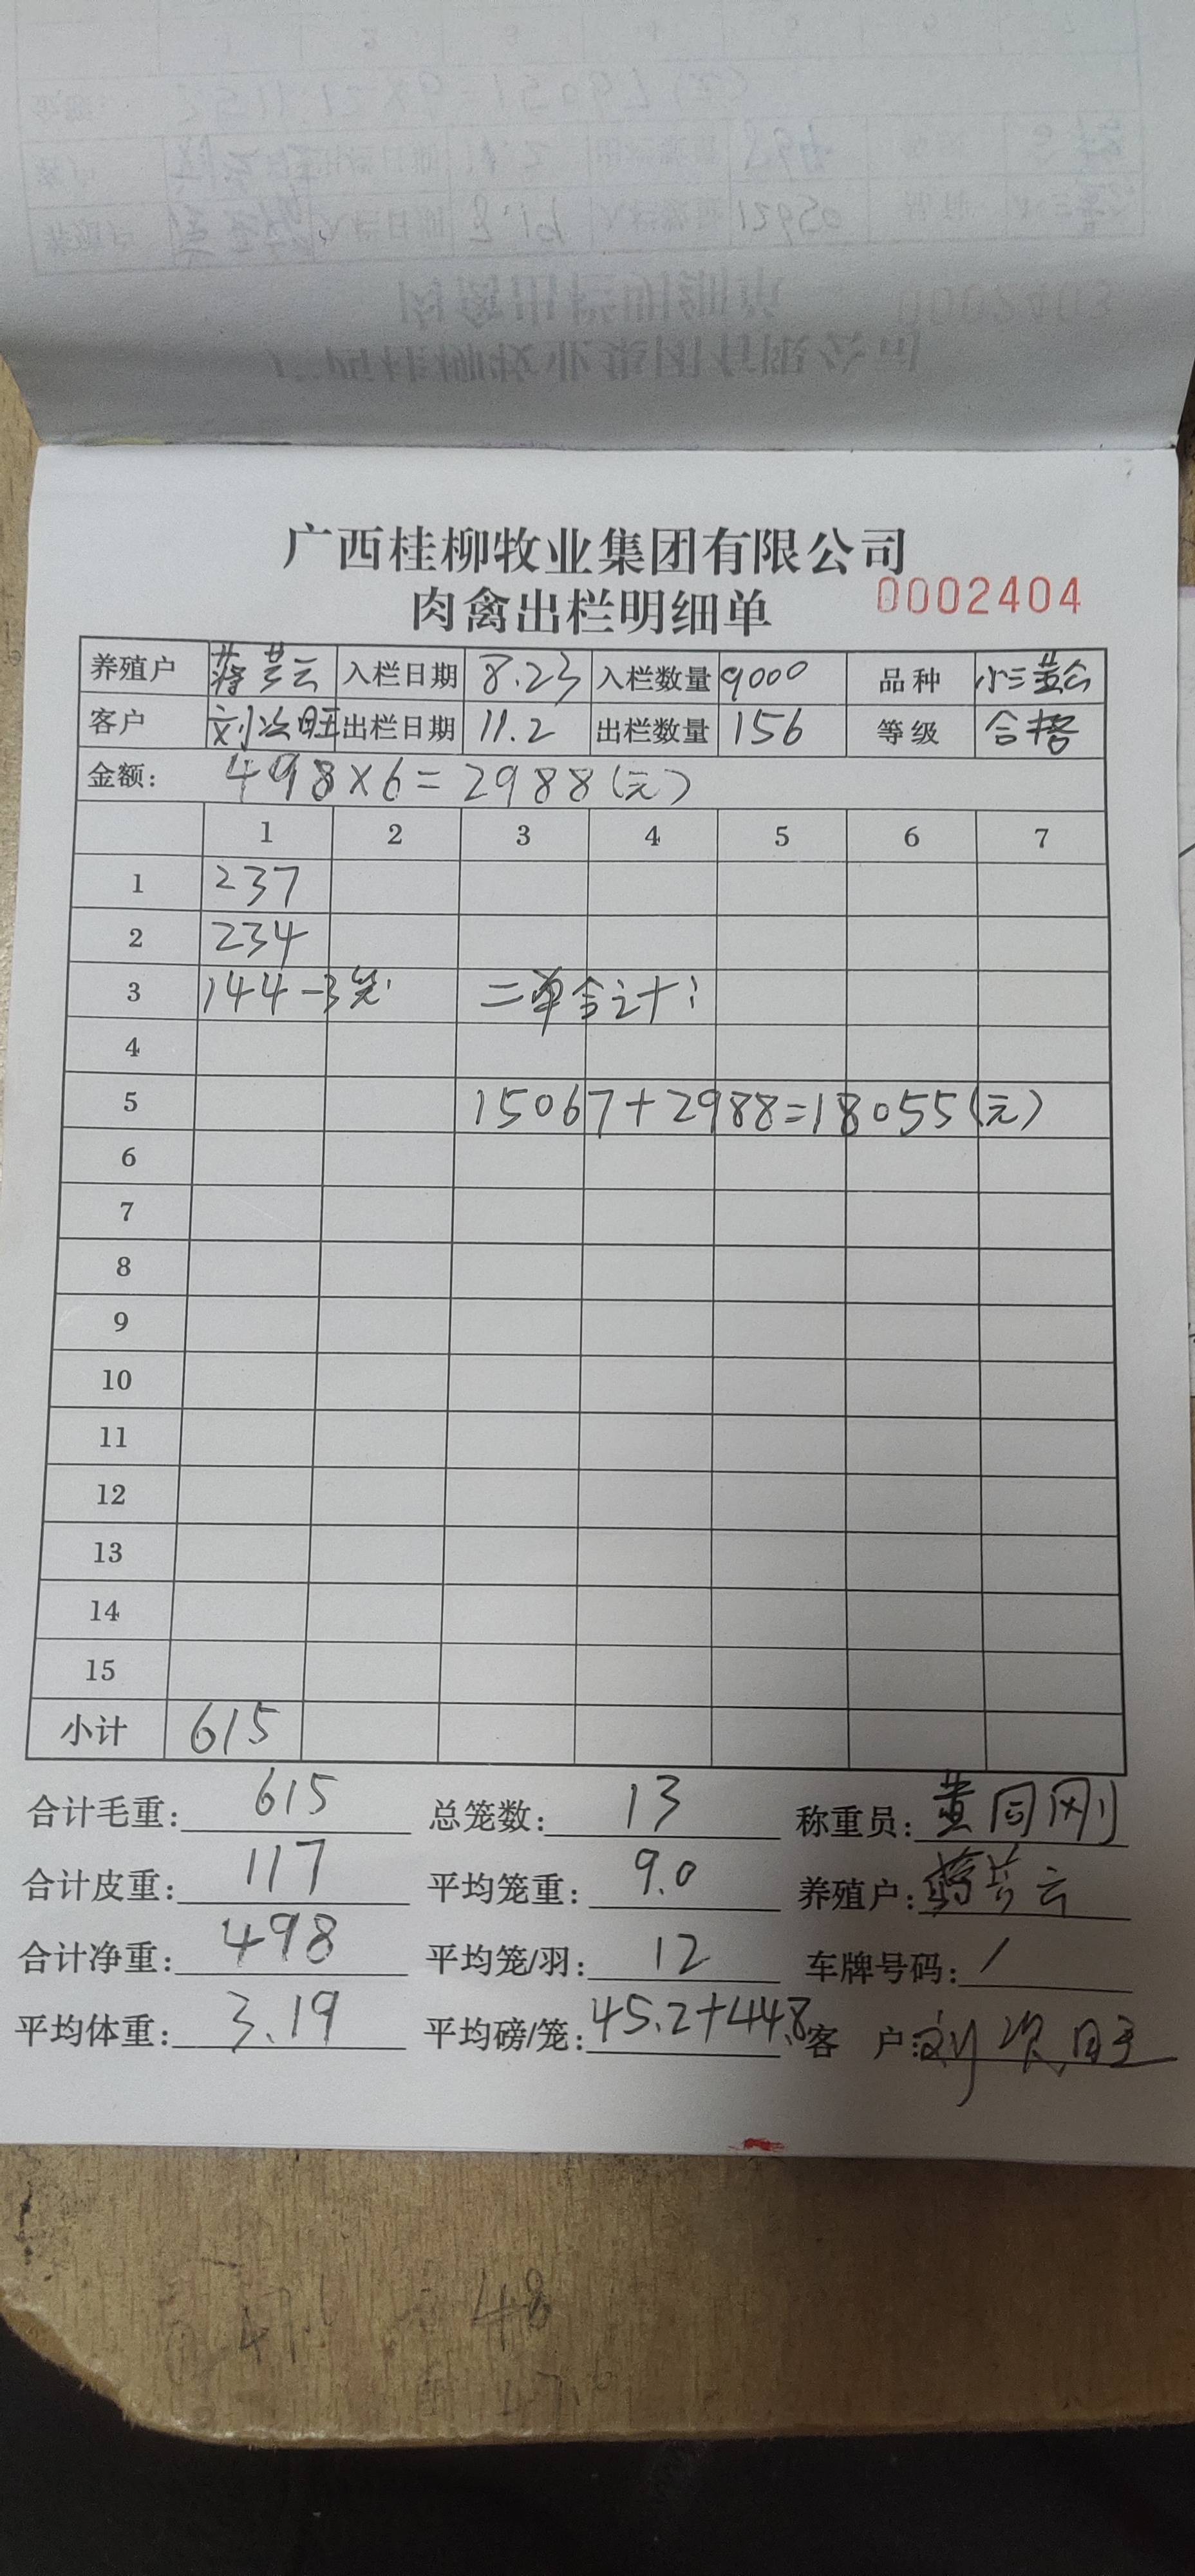 广西桂柳牧业集团有限公司
肉禽出栏明细单 0002404
养殖户 蒋芳云 入栏日期 8.23 入栏数量 9000 品种 小三黄公
客户 刘次旺 出栏日期 11.2 出栏数量 156 等级 合格
金额: 498×6=2988(元)
1 2 3 4 5 6 7
1 237
2 234
3 144-3笼 二单合计:
4
5 15067+2988=18055(元)
6
7
8
9
10
11
12
13
14
15
小计 615
合计毛重: 615 总笼数: 13 称重员: 黄同刚
合计皮重: 117 平均笼重: 9.0 养殖户: 蒋芳云
合计净重: 498 平均笼/羽: 12 车牌号码: /
平均体重: 3.19 平均磅/笼: 45.2+44.8 客 户: 刘次旺
48